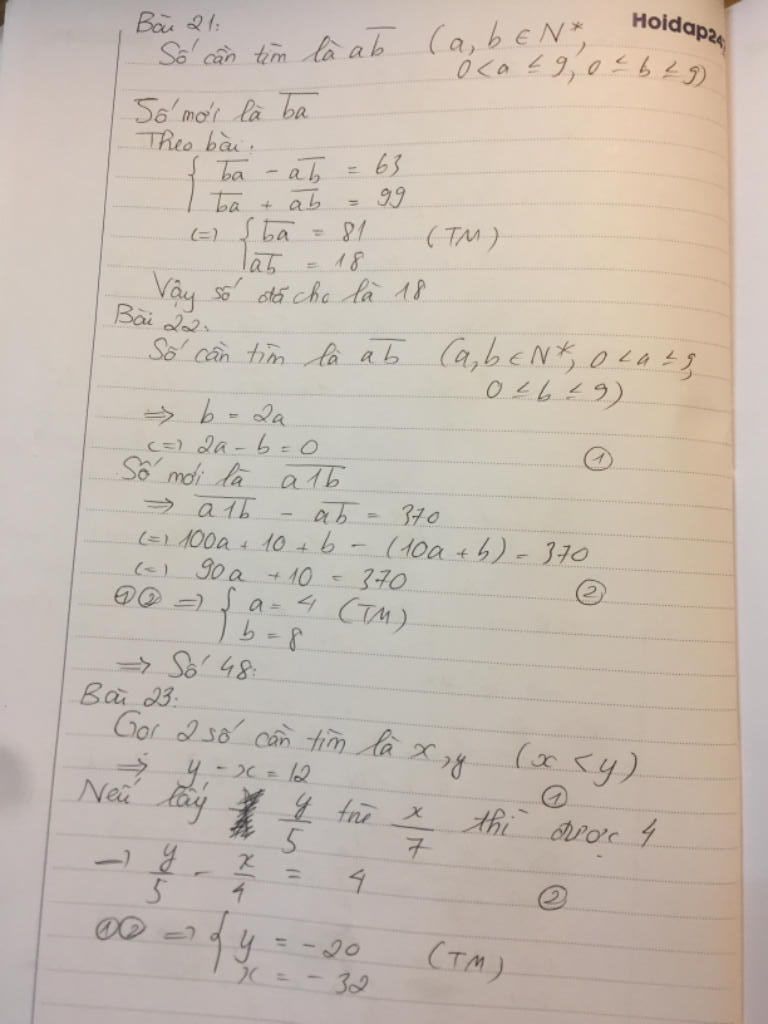 Bài 21:
Hoidap24
Số cần tìm là ab̅ (a, b ∈ N*,
0 < a ≤ 9, 0 ≤ b ≤ 9)
Số mới là b̅a̅
Theo bài:
{ b̅a̅ - a̅b̅ = 63
b̅a̅ + a̅b̅ = 99
(=) { b̅a̅ = 81 (TM)
a̅b̅ = 18
Vậy số đã cho là 18
Bài 22:
Số cần tìm là a̅b̅ (a, b ∈ N*, 0 < a ≤ 9,
0 ≤ b ≤ 9)
=> b = 2a
(=) 2a - b = 0 ①
Số mới là a̅1̅b̅
=> a̅1̅b̅ - a̅b̅ = 370
(=) 100a + 10 + b - (10a + b) = 370
(=) 90a + 10 = 370 ②
①② => { a = 4 (TM)
b = 8
=> Số 48.
Bài 23:
Gọi 2 số cần tìm là x, y (x < y)
=> y - x = 12 ①
Nếu lấy y/5 trừ x/7 thì được 4
→ y/5 - x/4 = 4 ②
①② => { y = -20 (TM)
x = -32